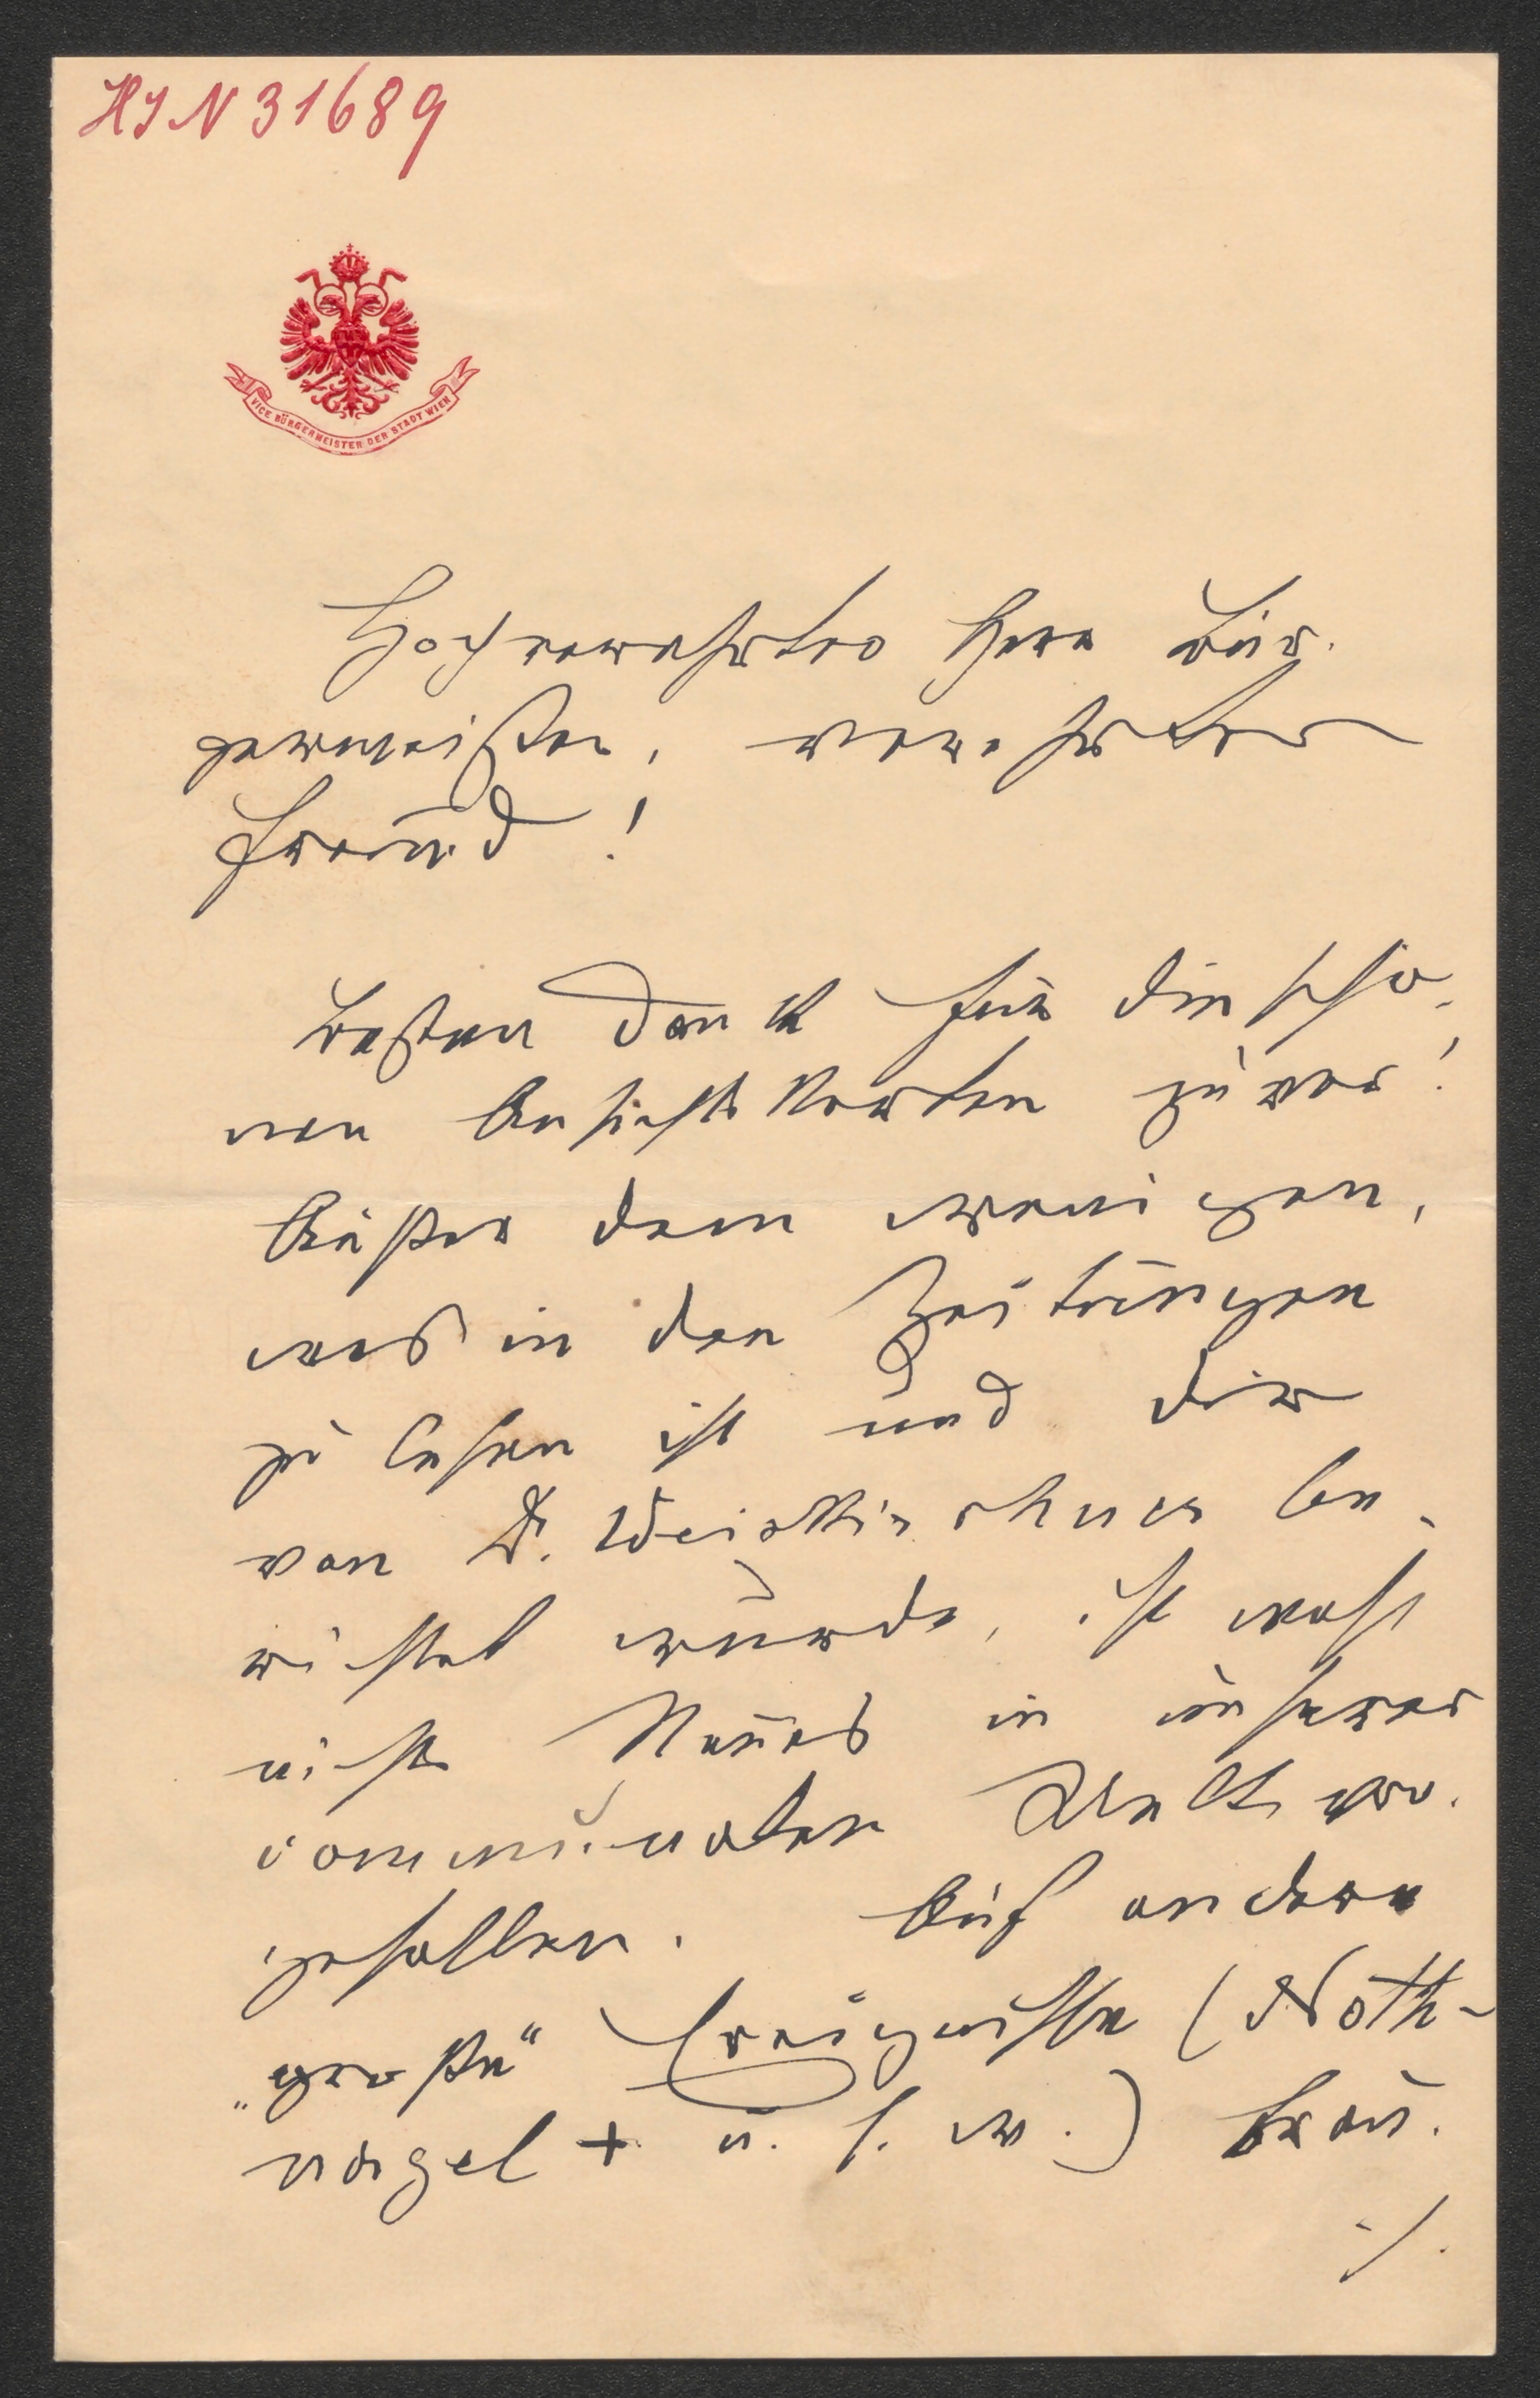 HIN 31689
VICE BÜRGERMEISTER DER STADT WIEN
Hochverehrter Herr Bür-
germeister, verehrter
Freund!
Besten Dank für die schö-
nen Ansichtskarten zuvor!
Außer dem wenigen,
was in den Zeitungen
zu lesen ist und dir
von Dr. Weiskirchner be-
richtet wurde, ist wohl
nichts Neues in unserer
communalen Welt vor-
gefallen. Auf andere
„große“ Ereignisse (Noth-
nagel + u. s. w.) brau-
./.